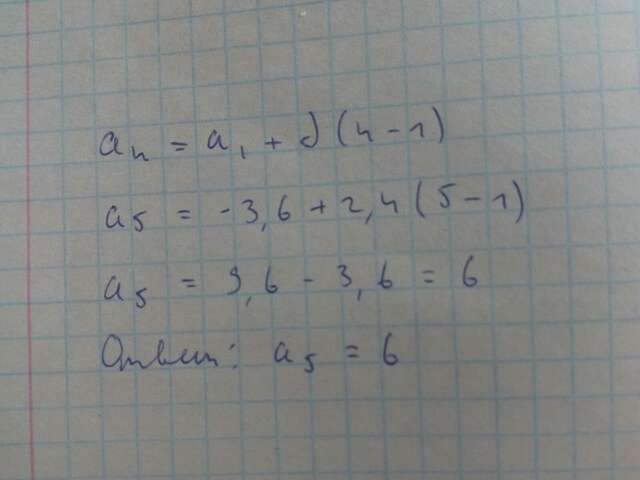 aₙ = a₁ + d (n - 1)
a₅ = -3,6 + 2,4 ( 5 - 1)
a₅ = 9,6 - 3,6 = 6
Ответ: a₅ = 6